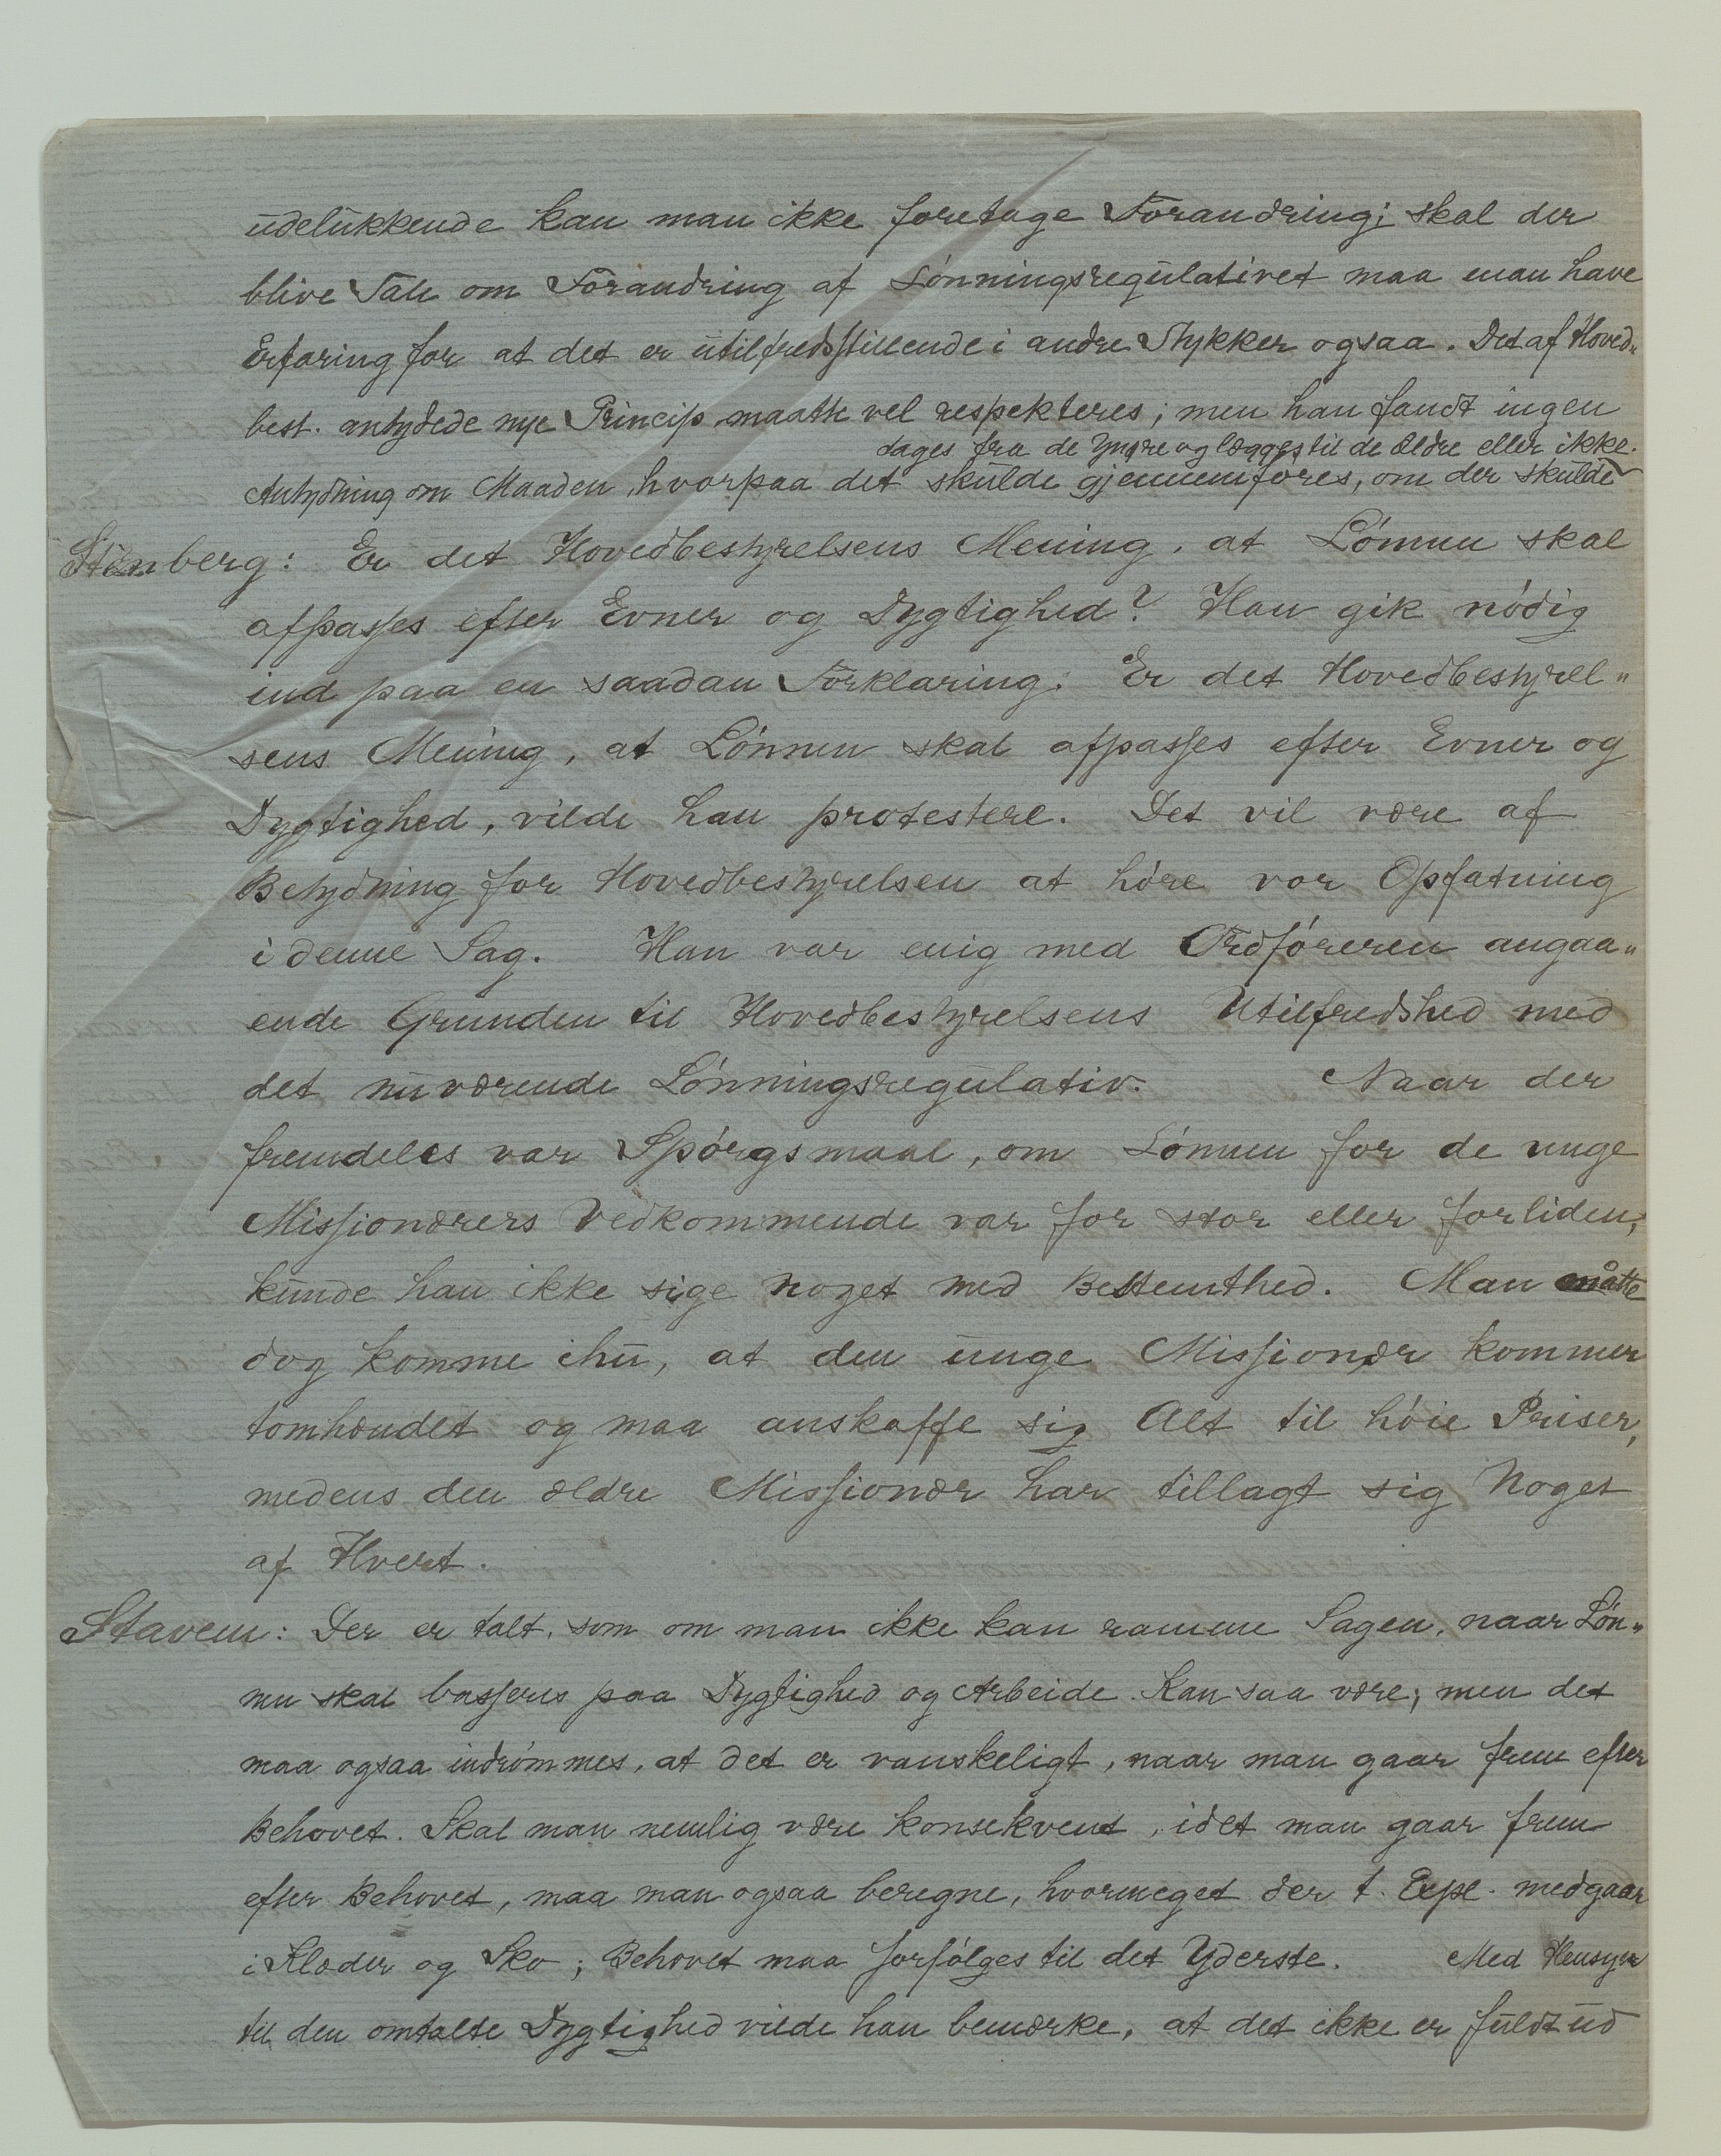 udelukkende kan man ikke foretage Forandring; skal der
blive Tale om Forandring af Lønningsregulativet maa man have
Erfaring for at det er utilfredsstillende i andre Stykker ogsaa. Det af Hoved„
best. antydede nye Princip maatte vel respekteres; men han fandt ingen
dages fra de Yngre og lægges til de Ældre eller ikke.
Antydning om Maaden, hvorpaa det skulde gjennemføres, om der skulde
Stenberg: Er det Hovedbestyrelsens Mening, at Lønnen skal
afpasses efter Evner og Dygtighed? Han gik nødig
ind paa en saadan Forklaring. Er det Hovedbestyrel„
sens Mening, at Lønnen skal afpasses efter Evner og
Dygtighed, vilde han protestere. Det vil være af
Betydning for Hovedbestyrelsen at høre vor Opfatning
i denne Sag. Han var enig med Ordføreren angaa„
ende Grunden til Hovedbestyrelsens Utilfredshed med
det nuværende Lønningsregulativ. Naar der
fremdeles var Spørgsmaal, om Lønnen for de unge
Missionærers Vedkommende var for stor eller for liden,
kunde han ikke sige noget med Bestemthed. Man måtte
dog komme ihu, at den unge Missionær kommer
tomhændet og maa anskaffe sig Alt til høie Priser,
medens den ældre Missionær har tillagt sig Noget
af Hvert.
Stavem: Der er talt, som om man ikke kan ramme Sagen, naar Løn„
nen skal basseres paa Dygtighed og Arbeide. Kan saa være; men det
maa ogsaa indrømmes, at det er vanskeligt, naar man gaar frem efter
Behovet. Skal man nemlig være konsekvent, idet man gaar frem
efter Behovet, maa man ogsaa beregne, hvormeget der t. Expl. medgaar
i Klæder og Sko; Behovet maa forfølges til det Yderste. Med Hensyn
til den omtalte Dygtighed vilde han bemærke, at det ikke er fuldt ud